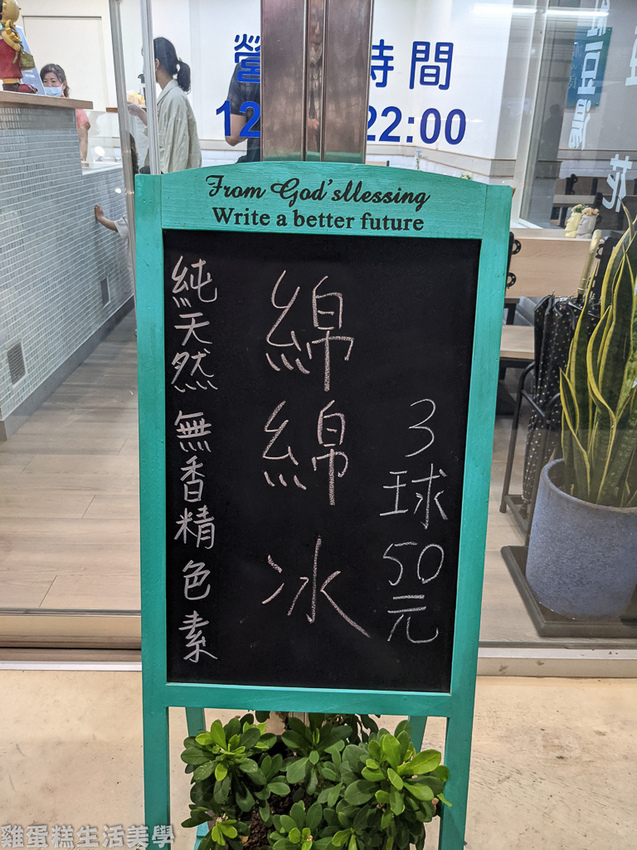 營 時間
12 22:00
From God'sMessing
Write a better future
3球50元
綿綿冰
純天然 無香精色素
花
雞蛋糕生活美學